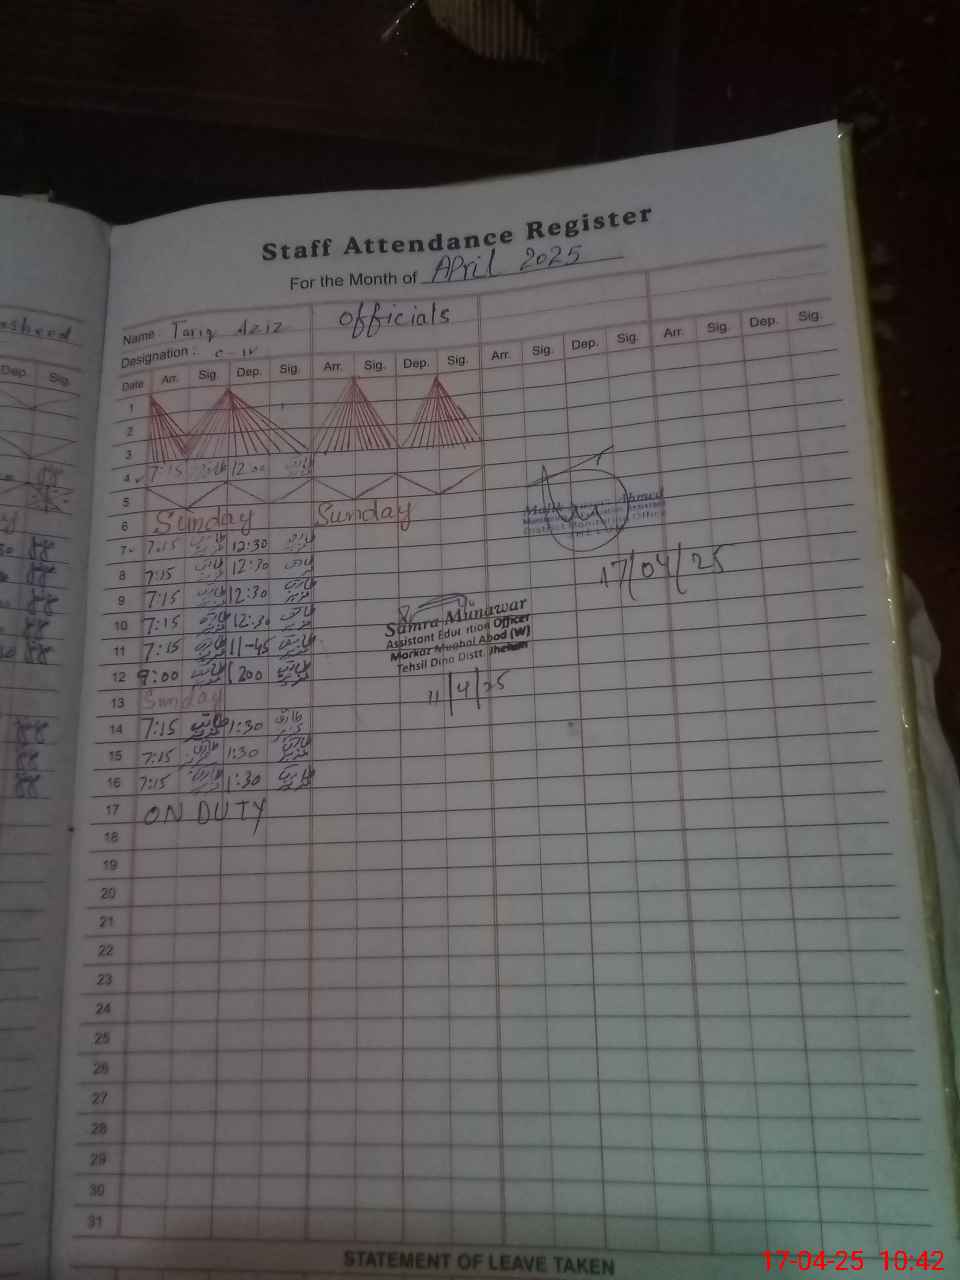 Staff Attendance Register
For the Month of April 2025
Name Tariq Aziz Officials
Designation : C-IV
Dep. Sig.
Date Arr. Sig. Dep. Sig. Arr. Sig. Dep. Sig. Arr. Sig. Dep. Sig. Arr. Sig. Dep. Sig.
1
2
3
4 7:15 12:00
5
6 Sunday Sunday
7 7:15 طارق عزیز 12:30 طارق عزیز
8 7:15 طارق عزیز 12:30 طارق عزیز
9 7:15 طارق عزیز 12:30 طارق عزیز
10 7:15 طارق عزیز 12:30 طارق عزیز
11 7:15 طارق عزیز 11-45 طارق عزیز
12 9:00 طارق عزیز 1200 طارق عزیز
13 Sunday
14 7:15 طارق عزیز 1:30 طارق عزیز
15 7:15 طارق عزیز 1:30 طارق عزیز
16 7:15 طارق عزیز 1:30 طارق عزیز
17 ON DUTY
18
19
20
21
22
23
24
25
26
27
28
29
30
31
Ahmed
District Monitoring Officer
17/04/25
Samra Munawar
Assistant Education Officer
Markaz Mughal Abad (W)
Tehsil Dina Distt. Jhelum
11/4/25
STATEMENT OF LEAVE TAKEN
17-04-25 10:42